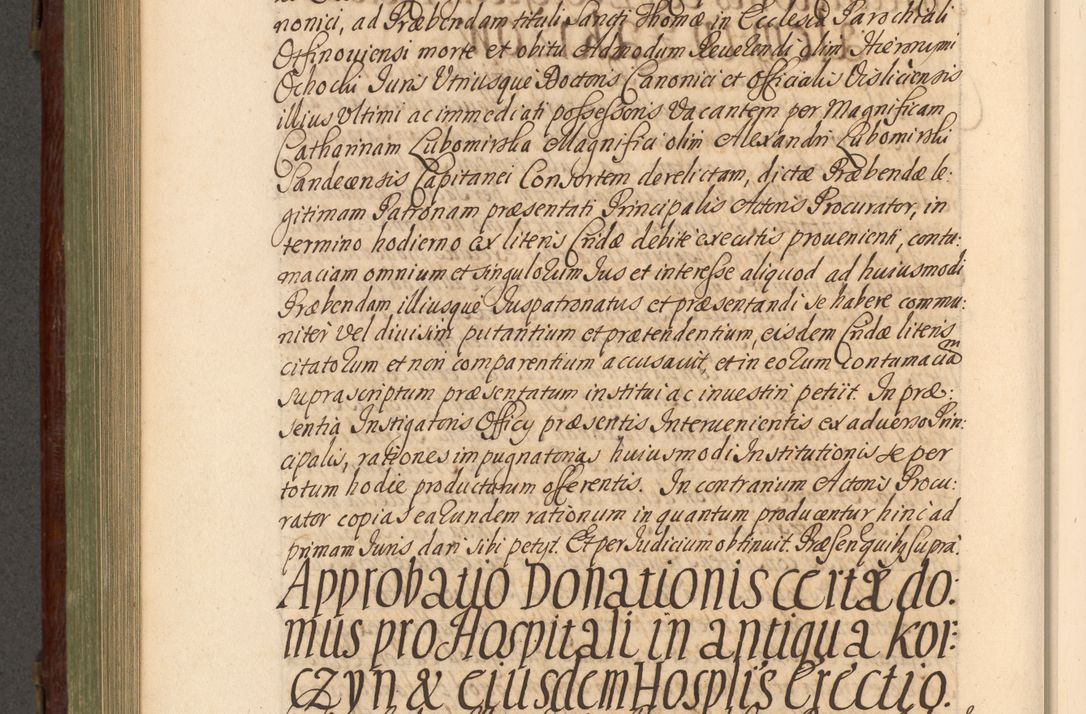 nonici, ad Præbendam tituli Sancti Thomæ in Ecclesia Parochiali
morte et obitu Admodum Reuerendi olim Hieronymi
Ochocki Juris Vtriusque Doctoris Canonici et Officialis Visliciensis
illius Vltimi ac immediati possessoris Vacantem per Magnificam
Catharinam Lubomirska Magnifici olim Alexandri Lubomirski
Sandecensis Capitanei Consortem derelictam, dictæ Præbendæ le:
gitimam Patronam præsentati Principalis Actoris Procurator, in
termino hodierno ex literis Cridæ debite executis prouenienti, contu:
maciam omnium et singulorum Jus et interesse aliquod ad huiusmodi
Præbendam illiusque Juspatronatus et præsentandi se habere commu:
niter vel diuisim putantium et prætendentium, eisdem Cridæ literis
citatorum et non comparentium accusauit, et in eorum contumaciam
suprascriptum præsentatum institui ac inuestiri petiit. In præ:
sentia Instigatoris Officy præsentis Interuenientis ex aduerso Prin:
cipalis, rationes impugnatorias huiusmodi Institutionis se per
totum hodie producturum offerentis. In contrarium Actoris Procu:
rator copias earundem rationum in quantum producentur hinc ad
primam Juris dari sibi petyt. Et per Judicium obtinuit. Præsen quibus supra.
Approbatio Donationis certæ do:
mus pro Hospitali in antiqua Kor:
czyn & eiusdem Hosplis erectio.